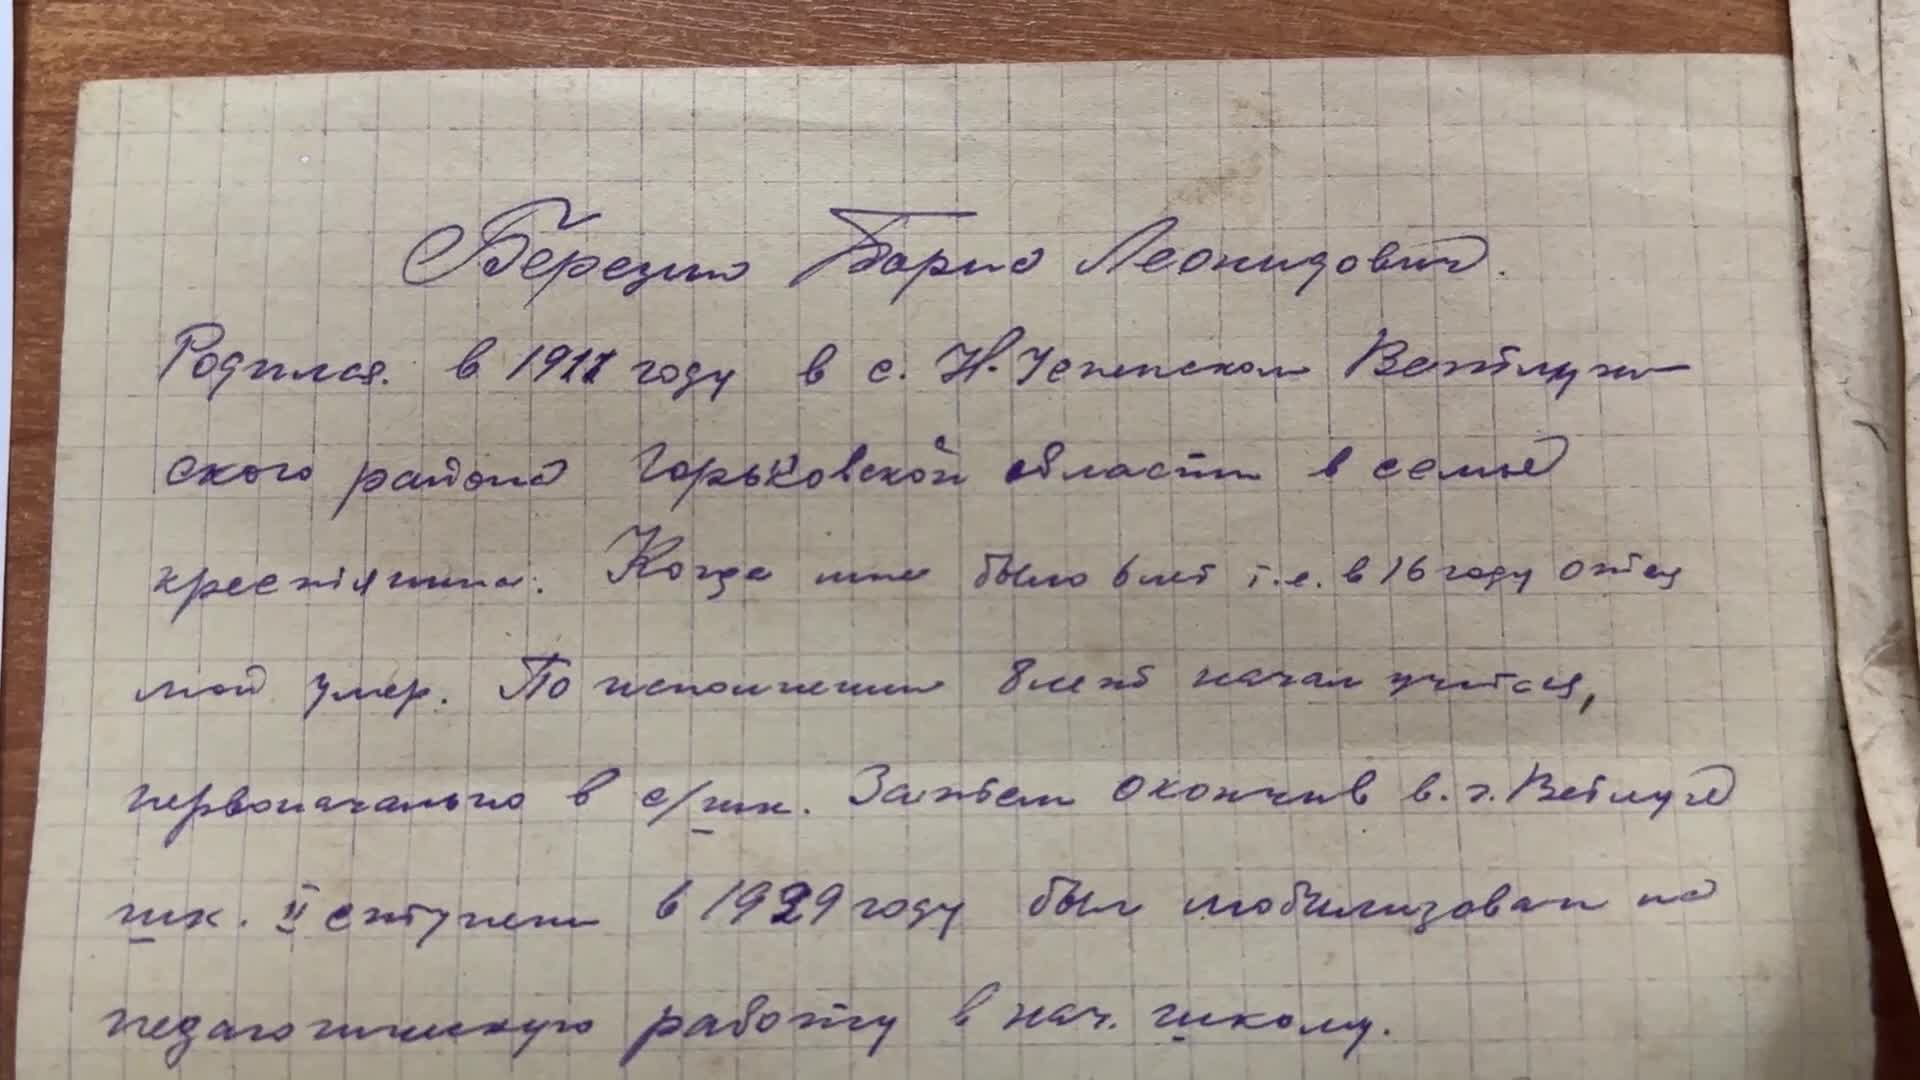 Березин Борис Леонидович.
Родился в 1911 году в с. Н. Успенском Ветлуж-
ского района Горьковской области в семье
крестьянина. Когда мне было 6 лет т.е. в 16 году отец
мой умер. По исполнении 8 лет начал учиться,
первоначально в с/шк. Затем окончив в г. Ветлуге
шк. II ступени в 1929 году был мобилизован на
педагогическую работу в нач. школу.